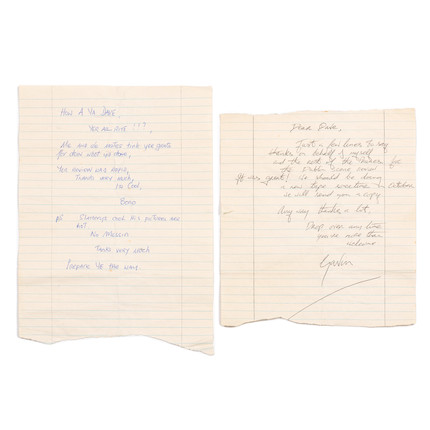 HOW A YA DAVE,
YER ALL RITE !!!,
Me an de mates tink yer great
for doin wot ya done,
Yer review was rapid,
Tanks very much,
Bono
PS.
his pictures are
No Messin
Tanks very much
Dear Dave,
Just a few lines to say
thanks on behalf of myself
and the rest of the
for
the Dublin scene
It was great. We should be doing
a new tape sometime in October
we will send you a copy
Any way thanks a lot.
Drop over any time
you're more than
welcome
Gavin